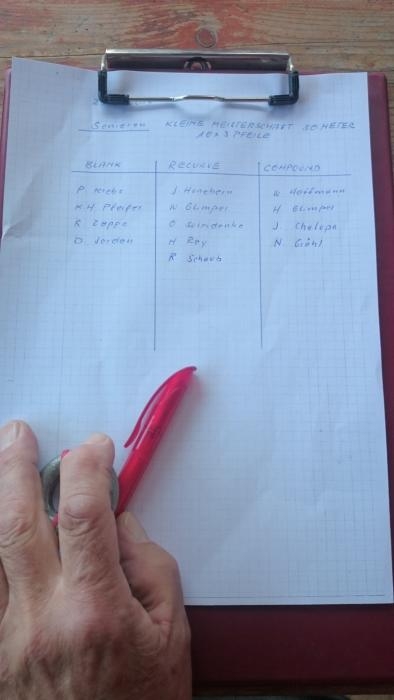 Senioren KLEINE MEISTERSCHAFT 30 METER
10 x 3 PFEILE
BLANK RECURVE COMPOUND
P. Krebs J. Hanebern W. Hoffmann
K.H. Pfeifer W Glimpel H Glimpel
R Zappe J. Chalupa
D. Jordan H Rey N. Göhl
R Schaub